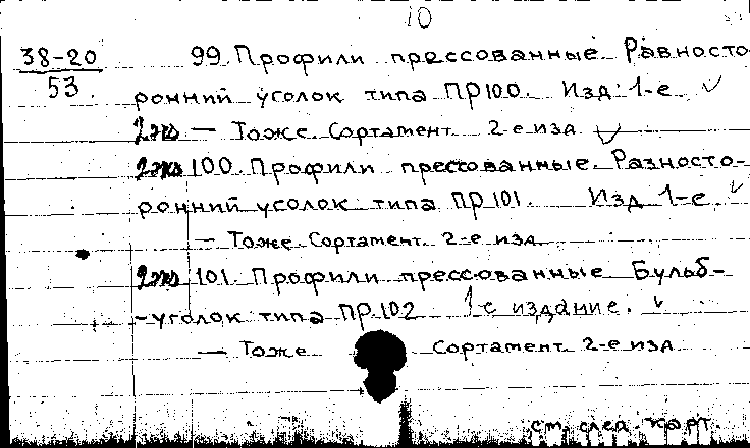 10
38-20 99. Профили прессованные Равносто
53. ронний уголок типа ПР100. Изд. 1-е
2эк — Тоже. Сортамент 2-е изд
2экз 100. Профили прессованные. Разносто-
ронний уголок типа ПР101. Изд 1-е.
— Тоже Сортамент. 2-е изд
2эк 101. Профили прессованные Бульб-
-уголок типа ПР.102 1-е издание.
— Тоже Сортамент 2-е изд
см. след. карт.